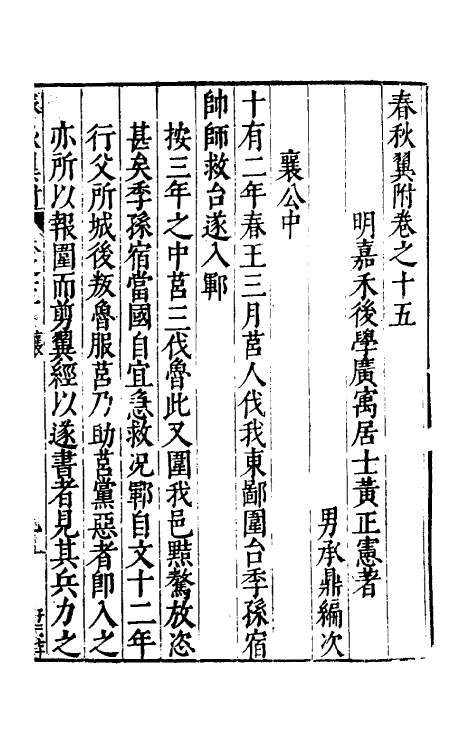 春秋翼附卷之十五
明嘉禾後學廣寓居士黃正憲著
男承鼎編次
襄公中
十有二年春王三月莒人伐我東鄙圍台季孫宿
帥師救台遂入鄆
按三年之中莒三伐魯此又圍我邑黠驁放恣
甚矣季孫宿當國自宜急救况鄆自文十二年
行父所城後叛魯服莒乃助莒黨惡者即入之
亦所以報圍而剪翼經以遂書者見其兵力之